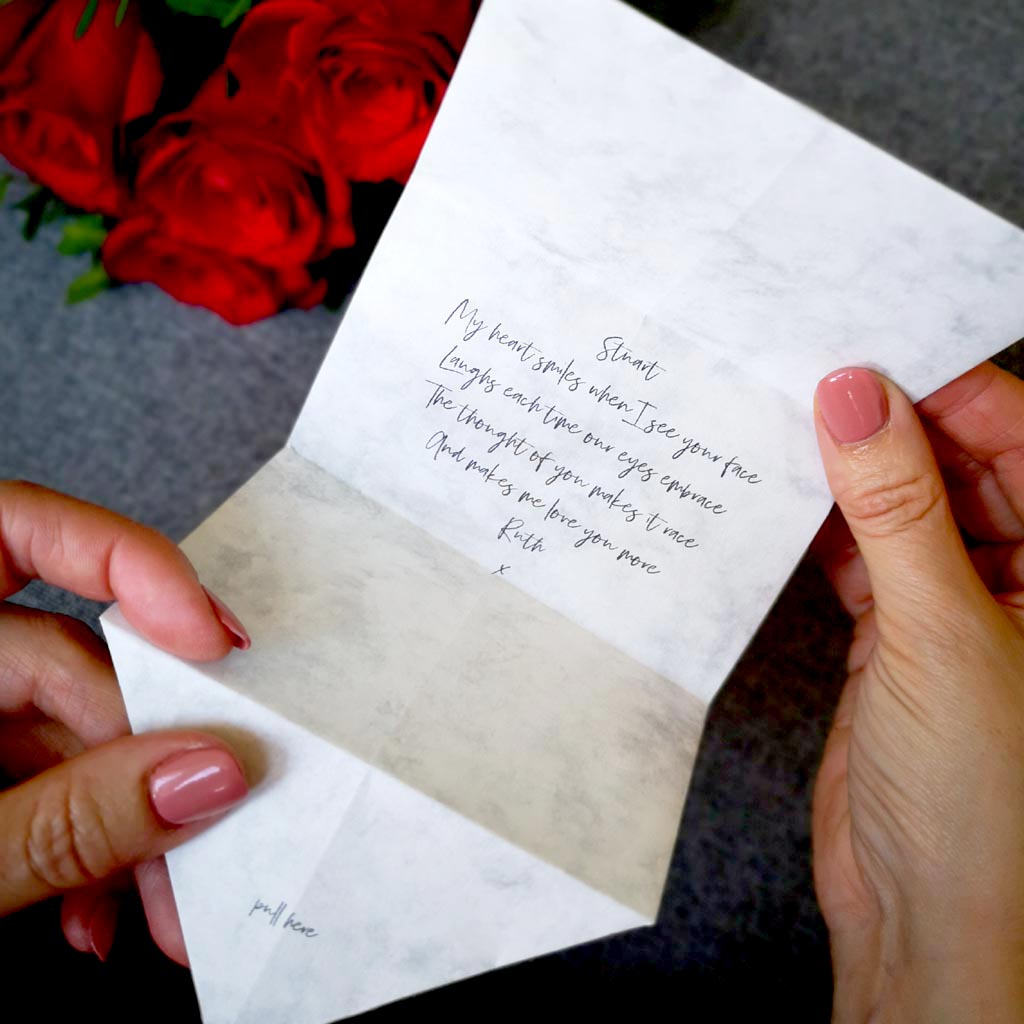 Stuart
My heart smiles when I see your face
Laughs each time our eyes embrace
The thought of you makes it race
And makes me love you more
Ruth
x
pull here